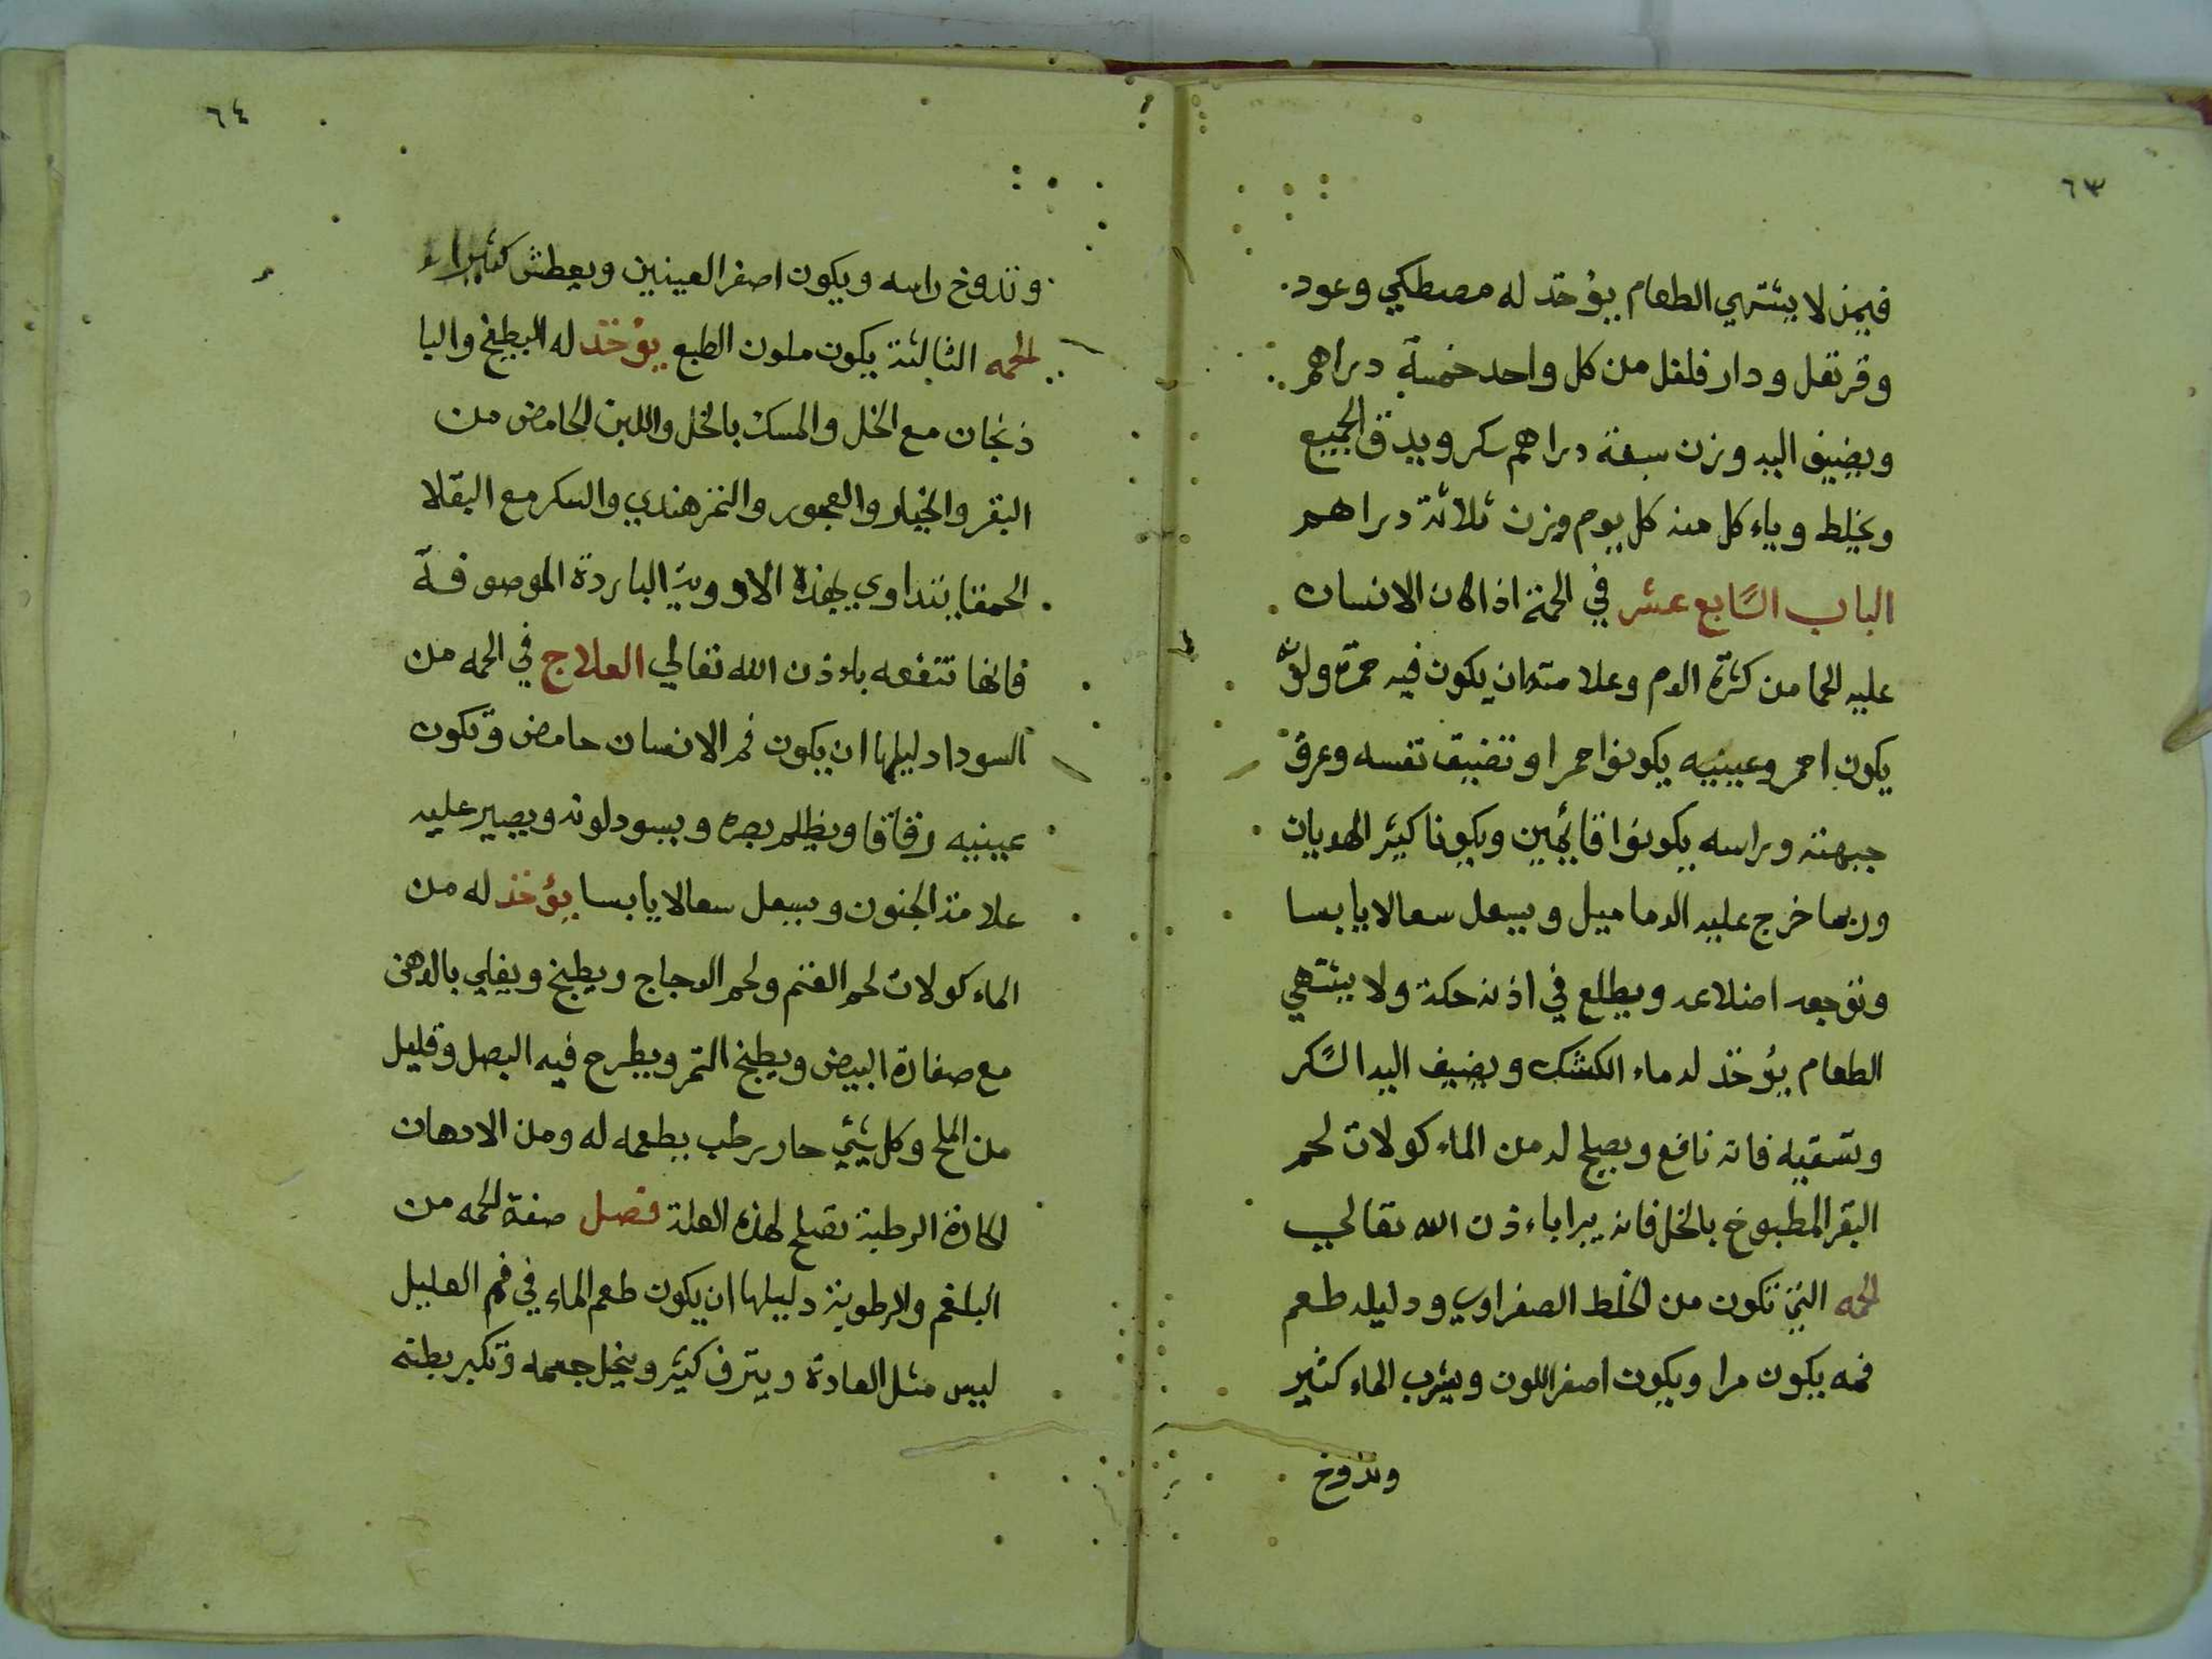 ٦٣
فيمن لا يشتهي الطعام يؤخذ له مصطكي وعود
وقرنفل ودار فلفل من كل واحد خمسة دراهم
ويضيف اليه وزن سبعة دراهم سكر ويدق الجميع
ويخلط وياءكل منه كل يوم وزن ثلاثة دراهم
الباب السابع عشر في الحمة اذا كان الانسان
عليه الحما من كثرة الدم وعلامته ان يكون فيه حمرة ولونه
يكون احمر وعينيه يكونوا حمرا وتضيق نفسه وعرق
جبهته وراسه يكونوا قايمين ويكونا كثير الهديان
وربما خرج عليه الدماميل ويسعل سعالا يابسا
وتوجعه اضلاعه ويطلع في اذنه حكة ولا يشتهي
الطعام يؤخذ له ماء الكشك ويضيف اليه السكر
وتسقيه فانه نافع ويصلح له من الماءكولات لحم
البقر المطبوخ بالخل فانه يبرا باءذن الله تعالي
الحمه التي تكون من الخلط الصفراوي ودليله طعم
فمه يكون مرا ويكون اصفر اللون ويشرب الماء كثير
وتدوخ
٦٤
وتدوخ راسه ويكون اصفر العينين ويعطش كثيرا
الحمه الثالثة يكون ملون الطبع يؤخذ له البطيخ والبا
ذنجان مع الخل والمسك بالخل واللبن الحامض من
البقر والخيار والعجور والتمر هندي والسكر مع البقلا
الحمقا يتداوي بهذه الادوية الباردة الموصوفة
فانها تنفعه باءذن الله تعالي العلاج في الحمه من
السودا دليلها ان يكون فم الانسان حامض وتكون
عينيه زقاقا ويظلم بصره ويسود لونه ويصير عليه
علامة الجنون ويسعل سعالا يابسا يؤخذ له من
الماءكولات لحم الغنم ولحم الدجاج ويطبخ ويغلي بالدهن
مع صفارة البيض ويطبخ التمر ويطرح فيه البصل وقليل
من الملح وكل شيي حار رطب يطعمه له ومن الادهان
الحارة الرطبة تصلح لهذه العلة فصل صفة الحمه من
البلغم والرطوبة دليلها ان يكون طعم الماء في فم العليل
ليس مثل العادة ويترف كثير وينحل جسمه وتكبر بطنه